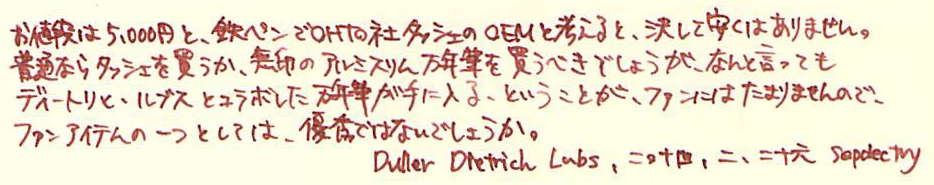 お値段は5,000円と、鉄ペンでOHTO社タッシェのOEMと考えると、決して安くはありません。
普通ならタッシェを買うか、無印のアルミスリム万年筆を買うべきでしょうが、なんと言っても
ディートリヒ・ルブスとコラボした万年筆が手に入る、ということが、ファンにはたまりませんので、
ファンアイテムの一つとしては、優秀ではないでしょうか。
Duller Dietrich Lubs, 二〇十四, 二、二十六